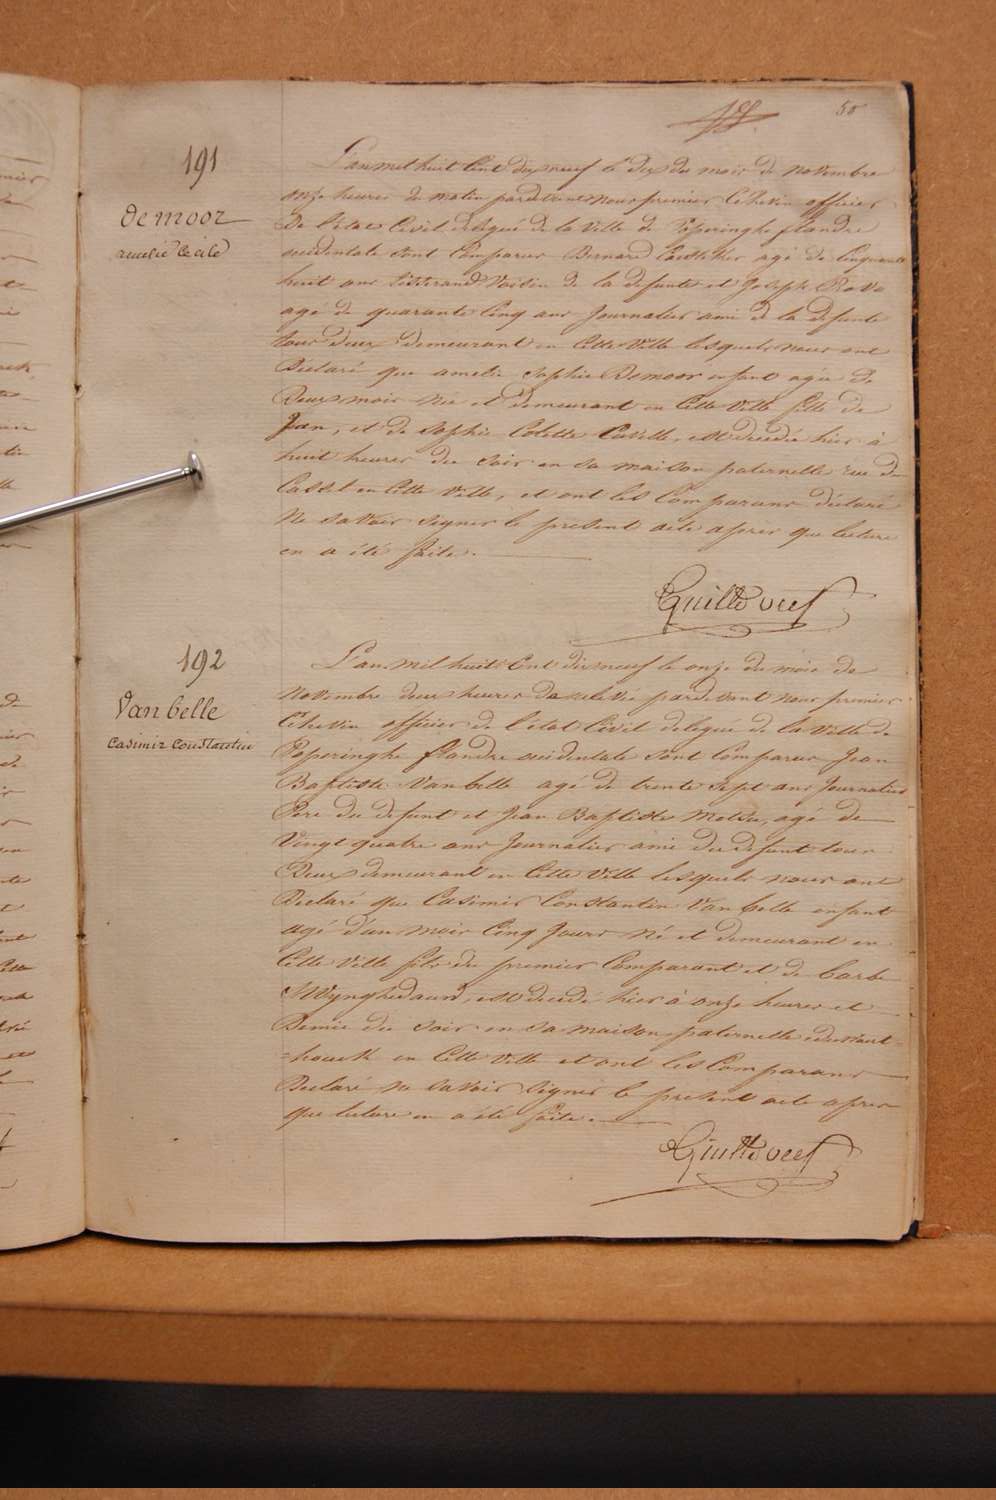 50
191
de moor
amelie Cecile
L'an mil huit Cent dix neuf le dix du mois de Novembre
onze heures du matin pardevant nous premier Echevin officier
De l'état Civil delegué de la Ville de Poperinghe flandre
occidentale sont Comparus Bernard agé de Cinquante
huit ans tisserand Voisin de la defunte et Joseph Rova
agé de quarante Cinq ans Journalier ami de la defunte
tous deux demeurant en Cette Ville lesquels nous ont
Déclaré que amelie Sophie Demoor enfant agée de
Deux mois née et demeurant en Cette Ville fille de
Jan, et de Sophie Colette Caville, est decedée hier à
huit heures du soir en sa maison paternelle rue de
Cassel en Cette Ville, et ont les Comparans déclaré
Ne savoir signer le present acte apres que lecture
en a été faite.
192
Van belle
Casimir Constantin
L'an mil huit Cent dix neuf le onze du mois de
Novembre deux heures de relevée pardevant nous premier
Echevin officier de l'état Civil delegué de la Ville de
Poperinghe flandre occidentale sont Comparus Jean
Baptiste Vanbelle agé de trente sept ans Journalier
Pere du defunt et Jean Baptiste agé de
Vingt quatre ans Journalier ami du defunt tous
Deux demeurant en Cette Ville lesquels nous ont
Declaré que Casimir Constantin Van belle enfant
agé d'un mois Cinq Jours né et demeurant en
Cette Ville fils du premier Comparant et de Barbe
Wynghedauw, est decedé hier à onze heures et
Demie du soir en sa maison paternelle
=houck en Cette Ville et ont les Comparans
Declaré ne savoir signer le present acte apres
que lecture en a été faite.